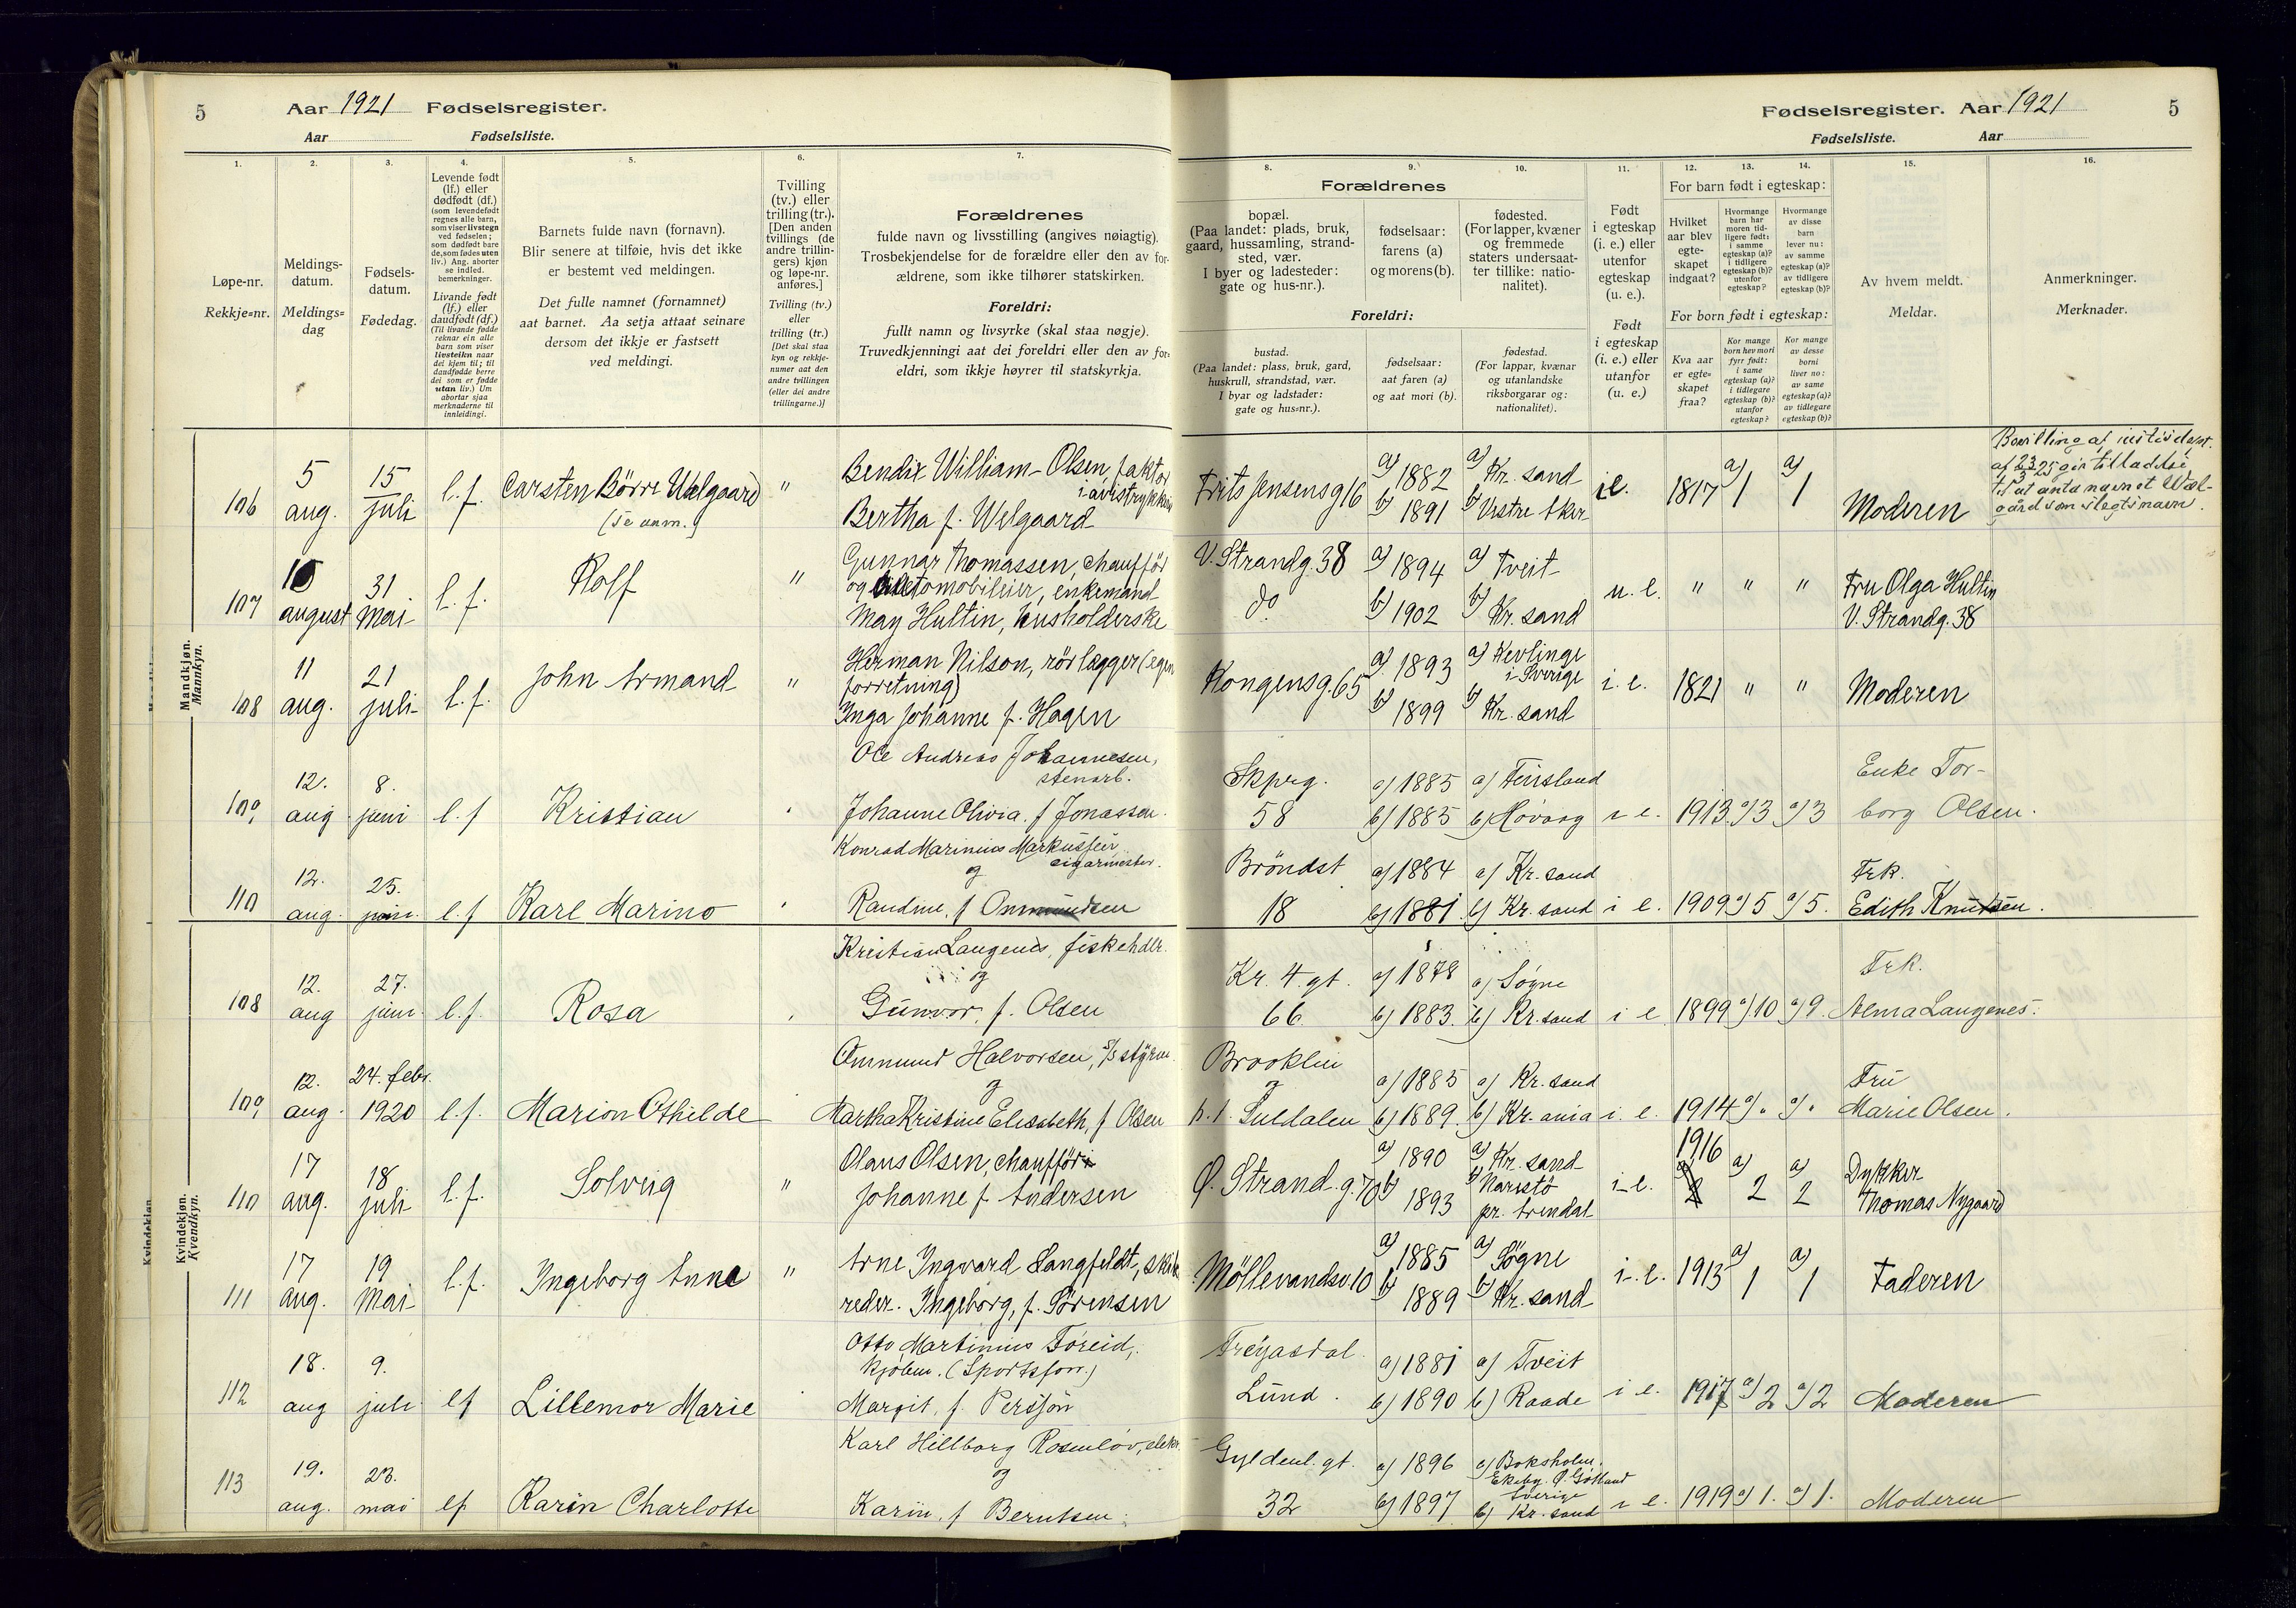 5 Aar 1921 Fødselsregister.
Aar Fødselsliste.
Fødselsregister. Aar 1921 5
Fødselsliste. Aar
1. 2. 3. 4. 5. 6. 7.
Løpe-nr.
Rekkje=nr.
Meldings-
datum.
Meldings=
dag
Fødsels-
datum.
Fødedag.
Levende født
(lf.) eller
dødfødt (df.)
(som levendefødt
regnes alle barn,
som viser livstegn
ved fødselen;
som dødfødt bare
de, som fødes uten
liv.) Ang. aborter
se indled.
bemerkninger.
Livande født
(lf.) eller
daudfødt (df.)
(Til livande fødde
reknar ein alle
barn som viser
livsteikn naar
dei kjem til; til
daudfødde berre
dei som er fødde
utan liv.) Um
abortar sjaa
merknaderne til
innleidingi.
Barnets fulde navn (fornavn).
Blir senere at tilføie, hvis det ikke
er bestemt ved meldingen.
Det fulle namnet (fornamnet)
aat barnet. Aa setja attaat seinare
dersom det ikkje er fastsett
ved meldingi.
Tvilling
(tv.) eller
trilling (tr.).
[Den anden
tvillings (de
andre trillin-
gers) kjøn
og løpe-nr.
anføres.]
Tvilling (tv.)
eller
trilling (tr.)
[Det skal staa
kyn og rekkje-
numer aat den
andre tvillingen
(eller dei andre
trillingarne.)]
Forældrenes
fulde navn og livsstilling (angives nøiagtig).
Trosbekjendelse for de forældre eller den av for-
ældrene, som ikke tilhører statskirken.
Foreldri:
fullt namn og livsyrke (skal staa nøgje).
Truvedkjenningi aat dei foreldri eller den av for-
eldri, som ikkje høyrer til statskyrkja.
8. 9. 10. 11. 12. 13. 14. 15. 16.
Forældrenes
bopæl.
(Paa landet: plads, bruk,
gaard, hussamling, strand-
sted, vær.
I byer og ladesteder:
gate og hus-nr.).
fødselsaar:
farens (a)
og morens (b).
fødested.
(For lapper, kvæner
og fremmede
staters undersaat-
ter tillike: natio-
nalitet).
Foreldri:
bustad.
(Paa landet: plass, bruk, gard,
huskrull, strandstad, vær.
I byar og ladstader:
gate og hus=nr.).
fødselsaar:
aat faren (a)
og aat mori (b).
fødestad.
(For lappar, kvænar
og utanlandske
riksborgarar og:
nationalitet).
Født
i egteskap
(i. e.) eller
utenfor
egteskap
(u. e.).
Født
i egteskap
(i. e.) eller
utanfor
(u. e.)
For barn født i egteskap:
Hvilket
aar blev
egte-
skapet
indgaat?
Hvormange
barn har
moren tid-
ligere født:
i samme
egteskap (a)?
i tidligere
egteskap (b)?
utenfor
egteskap?
Hvormange
av disse
barn
lever nu:
av samme
egteskap (a)?
av tidligere
egteskap (b)?
For born født i egteskap:
Kva aar
er egte=
skapet
fraa?
Kor mange
born hev mori
fyrr født:
i same
egteskap (a)?
i tidlegare
egteskap (b)?
utanfor
egteskap?
Kor mange
av desse
borni
liver no:
av same
egteskap (a)?
av tidlegare
egteskap (b)?
Av hvem meldt.
Meldar.
Anmerkninger.
Merknader.
Mandkjøn.
Mannkyn.
106 5 aug. 15 juli l. f. Carsten Börre Welgaard (se anm.) "
Bendix William-Olsen, faktor
i avistrykkeri
Bertha f. Welgaard
Frits Jensens g 16 a) 1882 b) 1891 a) Kr. sand b) Vestre Aker i e. 1817 a) 1 a) 1 Moderen
Bevilling af justisdept.
af 23 25 gir tilladelse
til at anta navnet Wæl-
gård som slegtsnavn.
107 10 august 31 Mai l. f. Rolf "
Gunnar Thomassen, chaufför
og automobileier, enkemand
May Hultin, husholderske
V. Strandg. 38 do a) 1894 b) 1902 a) Tveit b) Kr. sand u. e. " " " Fru Olga Hultin
V. Strandg. 38
108 11 aug. 21 juli l. f. John Armand "
Herman Nilson, rörlægger (egen
forretning)
Inga Johanne f. Hagen
Kongensg. 65 a) 1893 b) 1899 a) Kevlinge i Sverige b) Kr. sand i. e. 1821 " " Moderen
109 12. aug 8. juni l. f Kristian
Ole Andreas Johannesen,
stenarb.
Johanne Olivia. f Jonassen.
Skprg. 58 a) 1885 b) 1885 a) Finsland b) Hövaag i e. 1913 a) 3 a) 3 Enke Tor-
borg Olsen.
110 12. aug. 25. juni. l. f Karl Marino
Konrad Marinius Markussen
og cigarmester.
Randine, f Ommundsen
Bröndst 18 a) 1884 b) 1881. a) Kr. sand b) Kr. sand i e. 1909 a) 5 a) 5. Frk.
Edith Knutsen.
Kvindekjøn.
Kvendkyn.
108 12. aug 27. juni. l. f. Rosa
Kristian Langenes, fiskehdlr.
og
Gunvor, f. Olsen
Kr. 4. gt. 66 a) 1878 b) 1883. a) Søgne b) Kr. sand i e 1899 a) 10 a) 9. Frk.
Alma Langenes.
109 12. aug. 24. febr. 1920 l. f. Marion Othilde
Ommund Halvorsen, s/s styrm.
og
Martha Kristine Elisabeth, f Olsen
Brooklin
og
p. t. Suldalen a) 1885 b) 1889. a) Kr. sand b) Kr. ania i. e. 1914 a) . a) . Fru
Marie Olsen.
110 17 aug. 18 juli l. f. Solveig "
Olaus Olsen, chaufför
Johanne f. Andersen
Ø. Strand. g. 70 a) 1890 b) 1893 a) Kr. sand b) Narestö pr. Arendal i. e. 1916 a) 2 a) 2 Dykker
Thomas Nygaard
111 17 aug. 19 Mai l. f. Ingeborg Anne "
Arne Ingvard Langfeldt, skibs
reder. Ingeborg, f. Sörensen
Möllevandsv. 10 a) 1885 b) 1889 a) Søgne b) Kr. sand i. e. 1913 a) 1 a) 1 Faderen
112 18. aug 9. juli l f Lillemor Marie
Otto Martinius Foreid,
kjöbm. (Sportsforr.)
Margit, f. Persson
Freyasdal.
Lund. a) 1881 b) 1890 a) Tveit b) Raade i e. 1917 a) 2 a) 2 Moderen
113 19. aug. 23. mai l f. Karin Charlotte
Karl Hillborg Rosenlöv, elektr.
og
Karin, f Berntsen.
Gyldenl. gt. 32 a) 1896 b) 1897 a) Boksholm.
Ekeby. Ø. Götland
Sverige
b) Kr. sand i e. 1919 a) 1. a) 1. Moderen